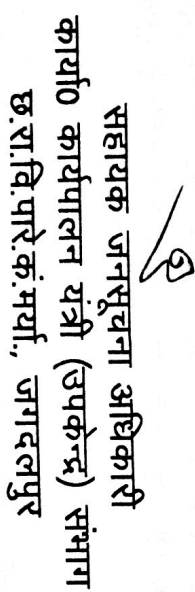 सहायक जनसूचना अधिकारी
कार्या0 कार्यपालन यंत्री (उपकेन्द्र) संभाग
छ.रा.वि.पारे.कं.मर्या., जगदलपुर